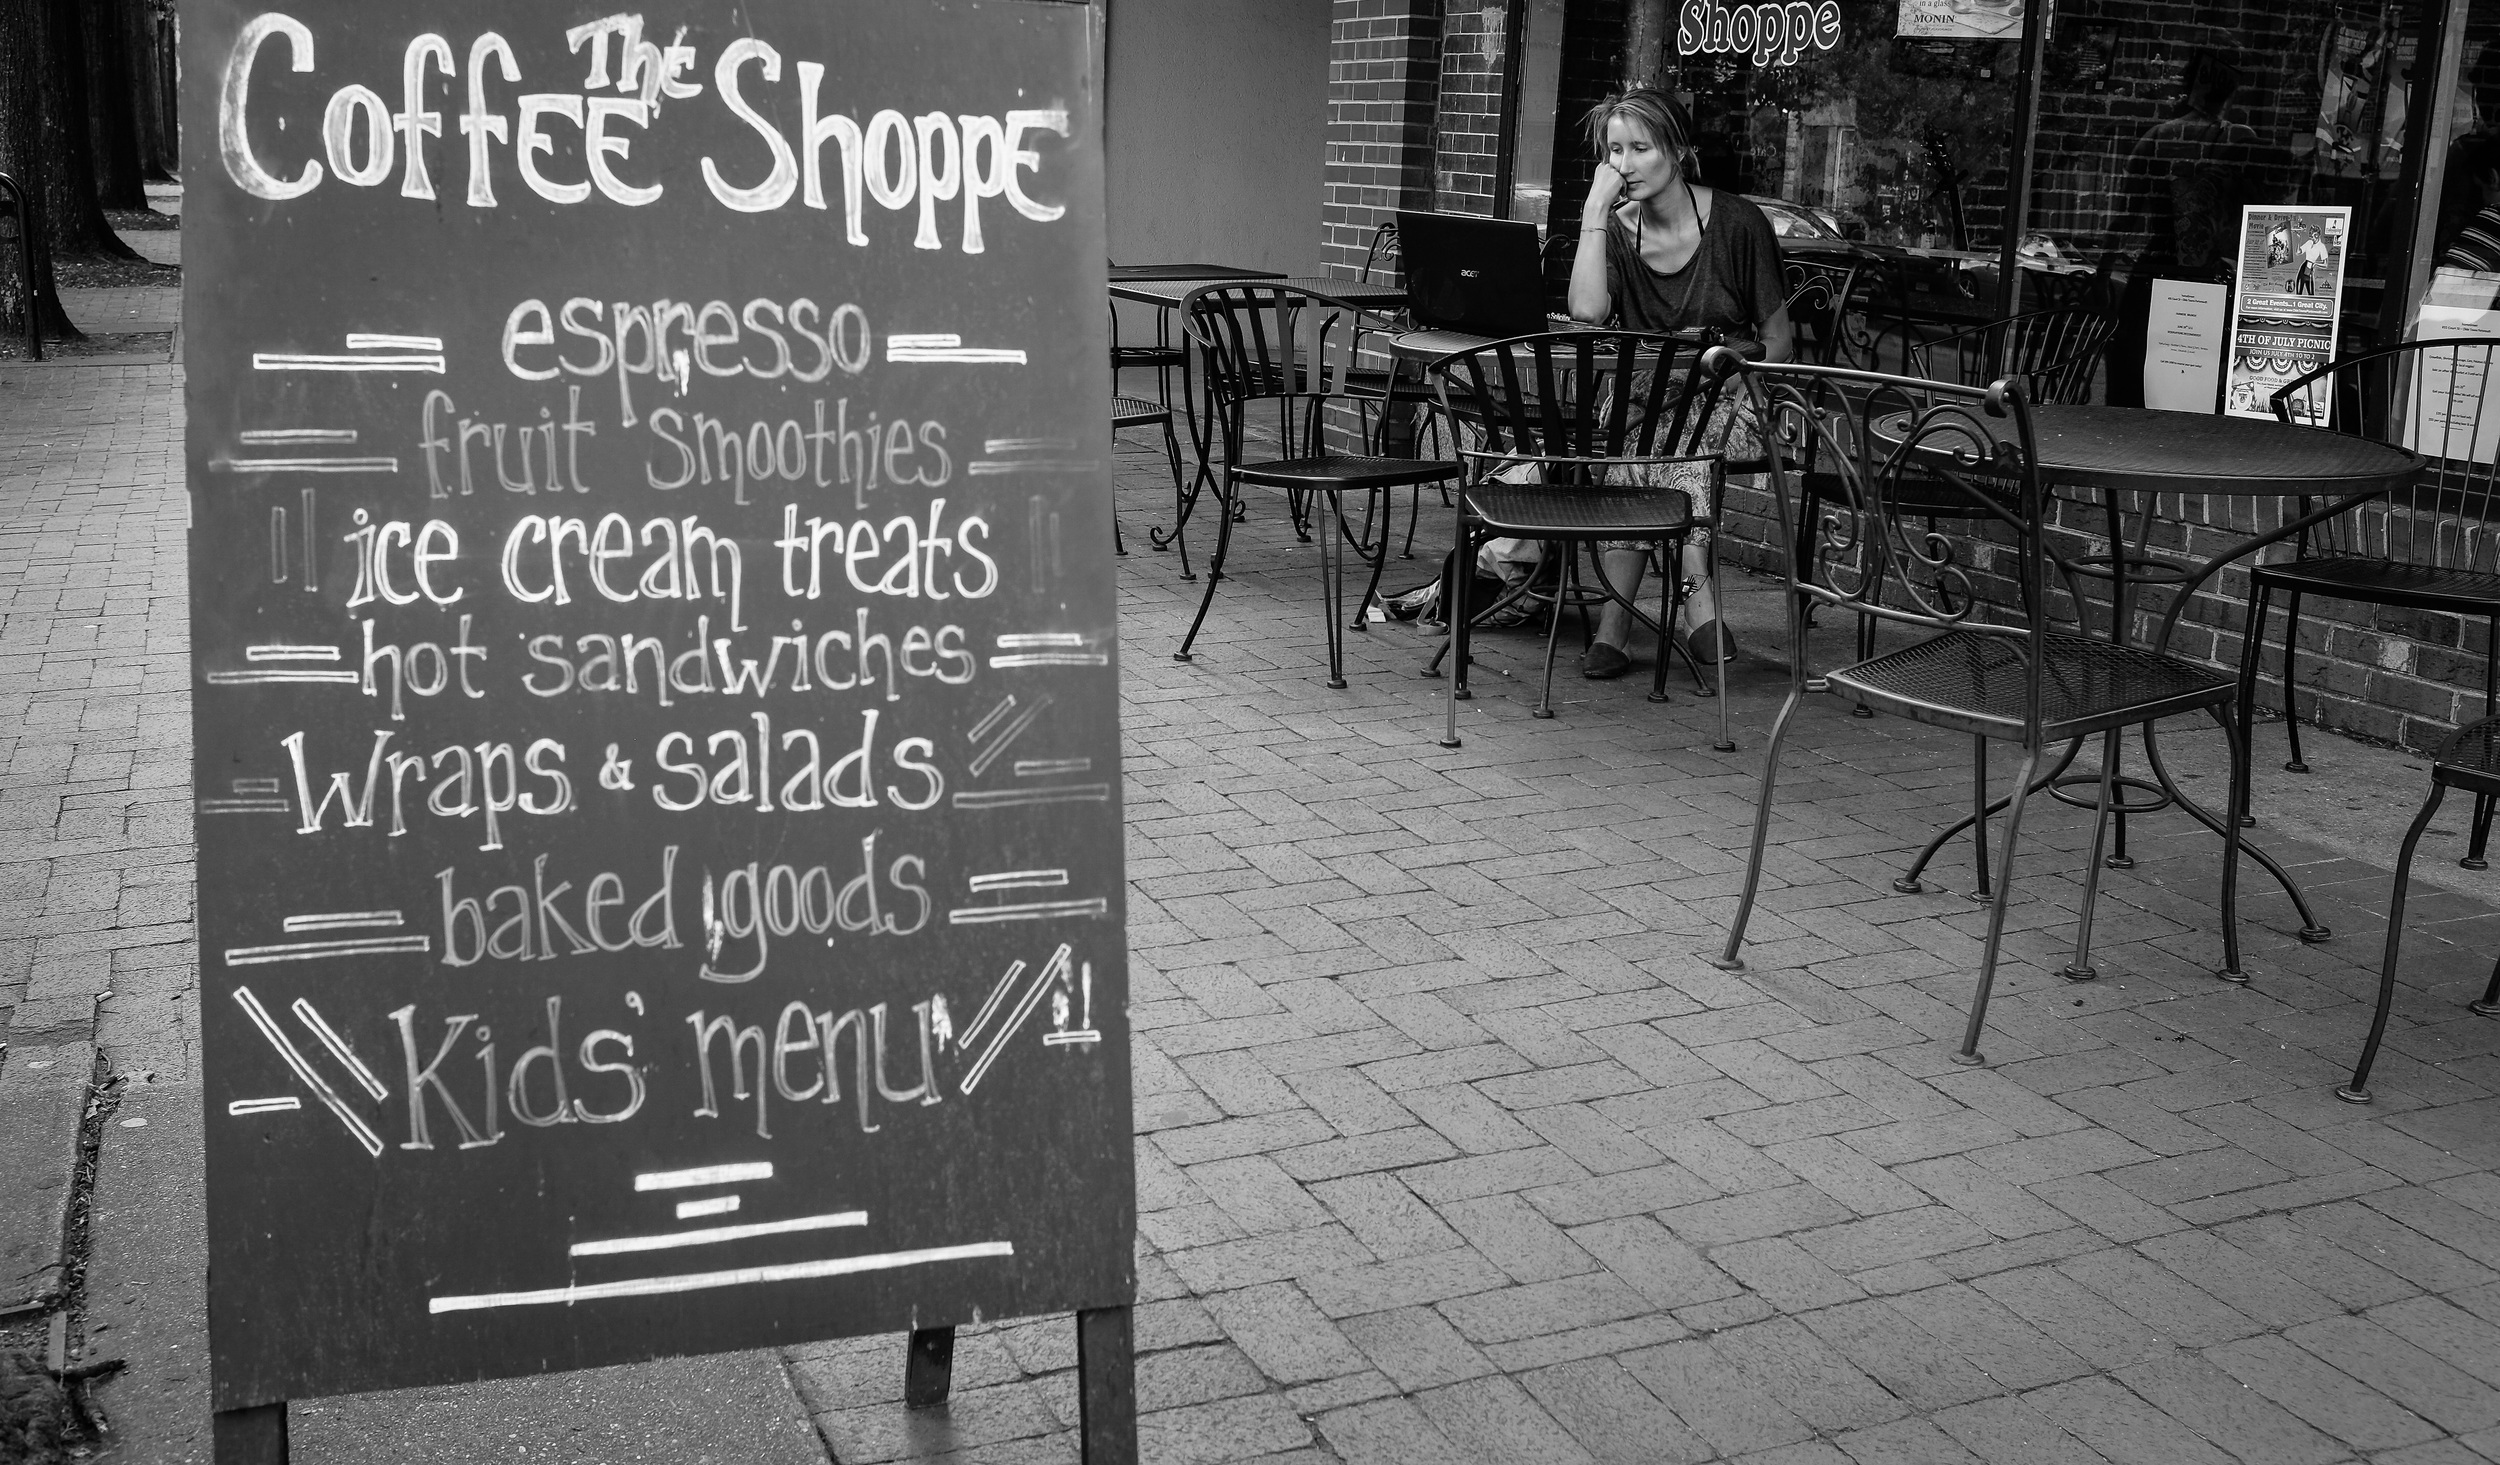 The
Coffee Shoppe
espresso
fruit smoothies
ice cream treats
hot sandwiches
Wraps & salads
baked goods
Kids' menu
Shoppe
in a glass
MONIN
acer
2 Great Events...1 Great City.
4TH OF JULY PICNIC
JOIN US JULY 4TH 10 TO 2
GOOD FOOD &